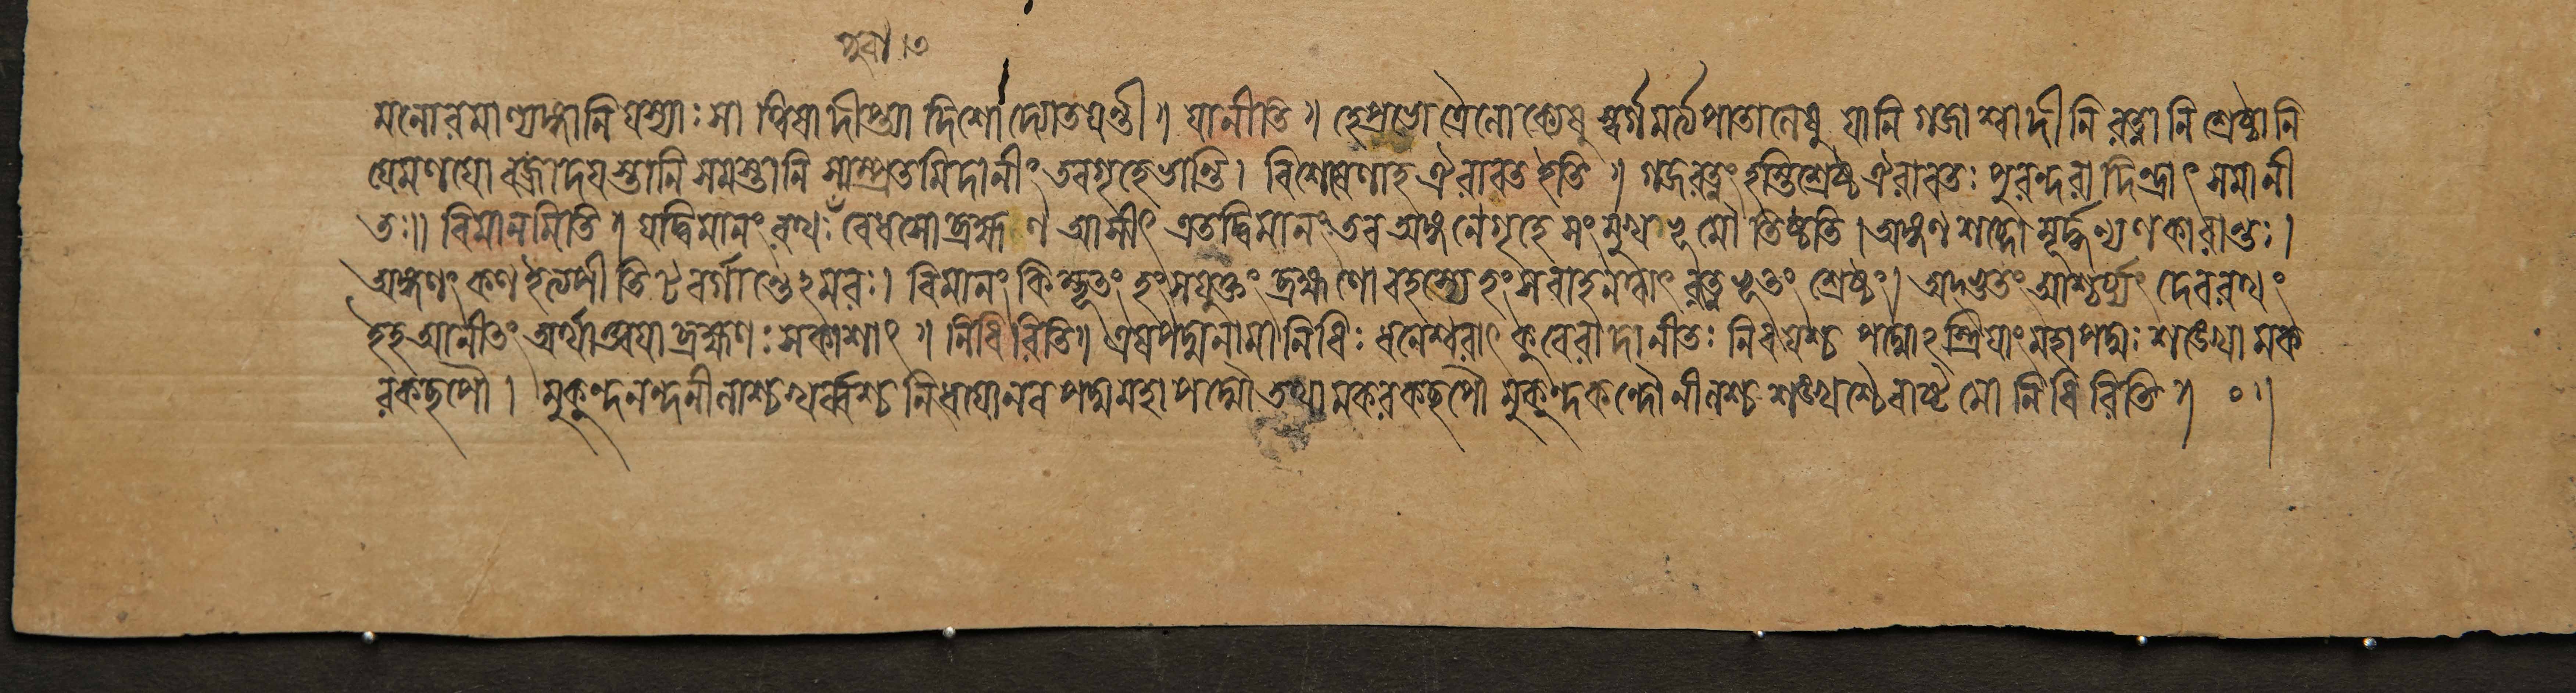 পুরা ।৩
মনোরমাণ্যঙ্গানি যস্যাঃ সা ত্বিষা দীপ্ত্যা দিশো দ্যোতয়ন্তী ॥ যানীতি ॥ হেপ্রভো ত্রৈলোক্যেষু স্বর্গমর্ত্যপাতালেষু যানি গজাশ্বাদীনি রত্নানি শ্রেষ্ঠানি
যেমণয়ো বজ্রাদয়স্তানি সমস্তানি সাম্প্রতমিদানীং তবগৃহেভান্তি । বিশেষেণাহ ঐরাবত ইতি ॥ গজরত্নং হস্তিশ্রেষ্ঠ ঐরাবতঃ পুরন্দরাদিন্দ্রাৎ সমানী
তঃ॥ বিমানমিতি ॥ যদ্বিমানং রথঃ বেধসো ব্রহ্মণ আসীৎ এতদ্বিমানং তব অঙ্গনে গৃহে সংমুখভূমৌ তিষ্ঠতি । অঙ্গণ শব্দো মূর্দ্ধন্যণকারান্তঃ ।
অঙ্গণং কণ ইত্যপীতি টবর্গান্তেঽমরঃ । বিমানং কিম্ভূতং হংসযুক্তং ব্রহ্মণো রহস্যে হংসবাহনত্বাৎ রত্নভূতং শ্রেষ্ঠং । অদ্ভুতং আশ্চর্য্যং দেবরথং
ইহ আনীতং অর্থাত্ত্বয়া ব্রহ্মণঃ সকাশাৎ ॥ নিধিরিতি ॥ এষপদ্মনামা নিধিঃ ধনেশ্বরাৎ কুবেরাদানীতঃ নিধয়শ্চ পদ্মোঽস্ত্রিয়াং মহাপদ্মঃ শঙ্খো মক
রকছপৌ । মুকুন্দনন্দনীলাশ্চ খর্ব্বশ্চ নিধয়োনব পদ্মমহাপদ্মৌ তথা মকরকছপৌ মুকুন্দকন্দৌ নীলশ্চ শঙ্খশ্চৈবাষ্টমো নিধিরিতি ॥ ० ॥